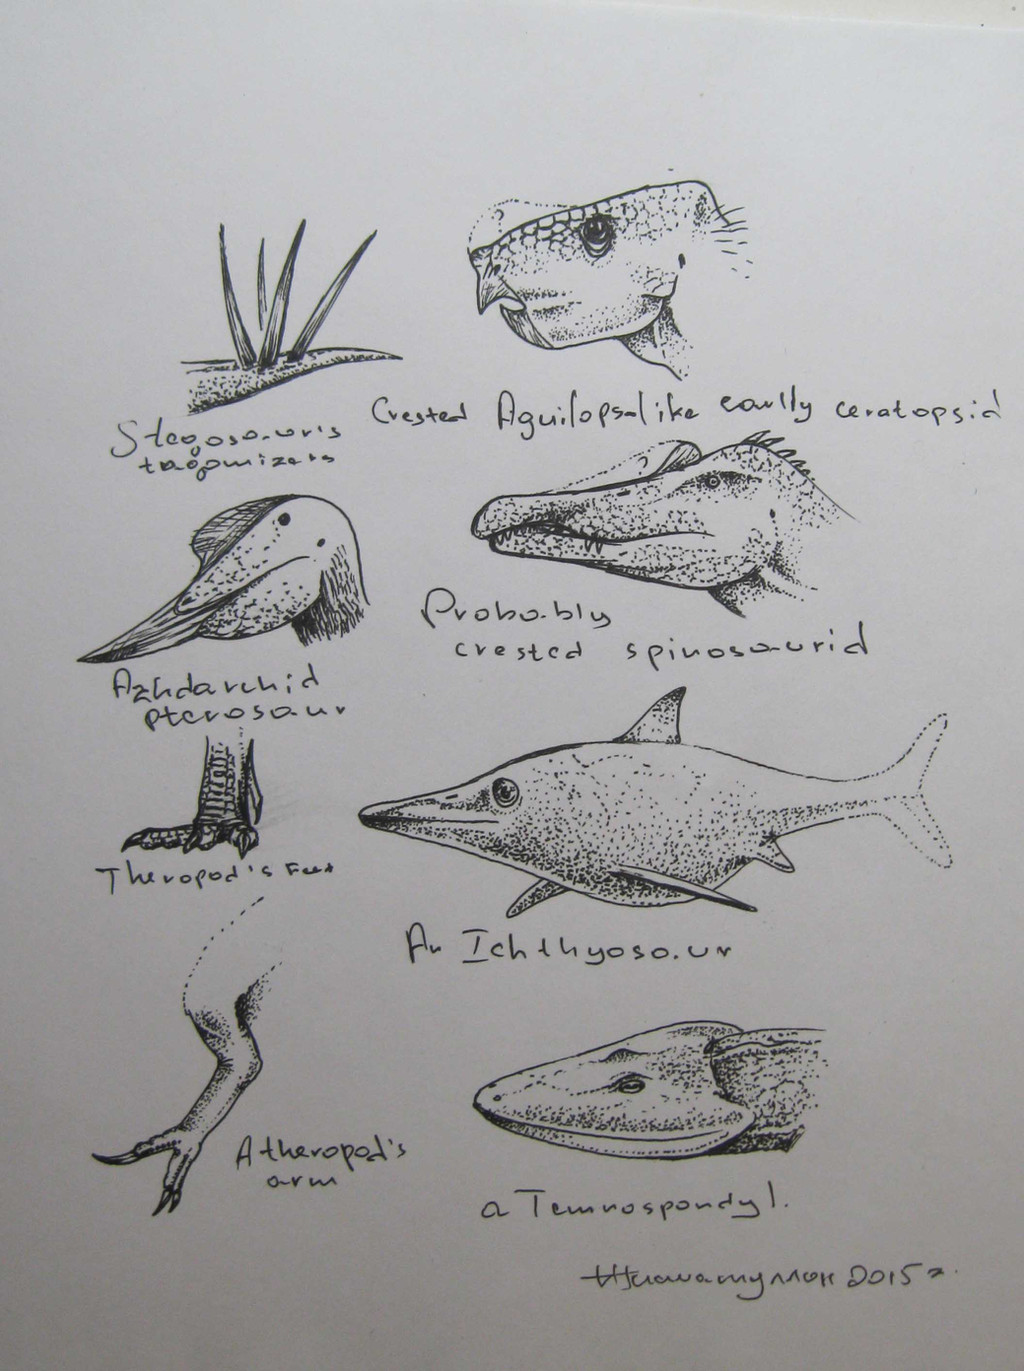 Crested Aquilops-like earlly ceratopsid
Stegosaur's
tagomizers
Probably
crested spinosaurid
Azhdarchid
pterosaur
Theropod's Feet
An Ichthyosaur
A theropod's
arm
a Temnospondyl.
2015г.